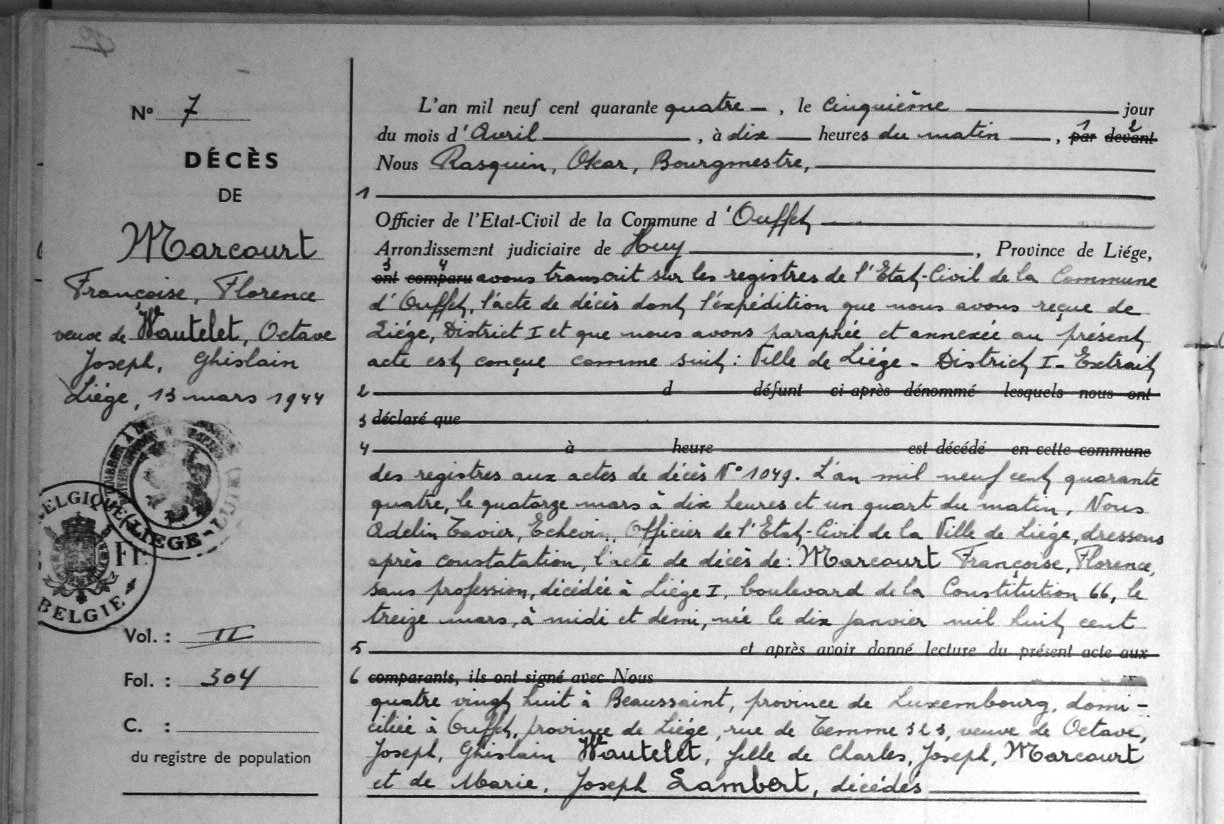 N° 7
DÉCÈS
DE
Marcourt
Françoise, Florence
veuve de Wautelet, Octave
Joseph, Ghislain
Liége, 13 mars 1944
BELGIQUE
BELGIE
LIEGE-LUIK
Vol. : II
Fol. : 304
C. :
du registre de population
L'an mil neuf cent quarante quatre, le cinquième jour
du mois d'Avril, à dix heures du matin, 1 par 2 devant
Nous Rasquin, Oscar, Bourgmestre,
1
Officier de l'Etat-Civil de la Commune d'Ouffet
Arrondissement judiciaire de Huy, Province de Liége,
3 ont 4 comparu avons transcrit sur les registres de l'Etat-Civil de la Commune
d'Ouffet, l'acte de décès dont l'expédition que nous avons reçue de
Liége, District I et que nous avons paraphée et annexée au présent
acte est conçue comme suit : Ville de Liége - District I - Extrait
2 d défunt ci-après dénommé lesquels nous ont
3 déclaré que
4 à heure est décédé en cette commune
des registres aux actes de décès N° 1049. L'an mil neuf cent quarante
quatre, le quatorze mars à dix heures et un quart du matin, Nous
Adelin Tavier, Echevin, Officier de l'Etat-Civil de la Ville de Liége, dressons
après constatation, l'acte de décès de : Marcourt Françoise, Florence,
sans profession, décédée à Liége I, boulevard de la Constitution 66, le
treize mars, à midi et demi, née le dix janvier mil huit cent
5 et après avoir donné lecture du présent acte aux
6 comparants, ils ont signé avec Nous
quatre vingt huit à Beaussaint, province de Luxembourg, domi-
ciliée à Ouffet, province de Liége, rue de Temme, veuve de Octave,
Joseph, Ghislain Wautelet, fille de Charles, Joseph, Marcourt
et de Marie, Joseph Lambert, décédés